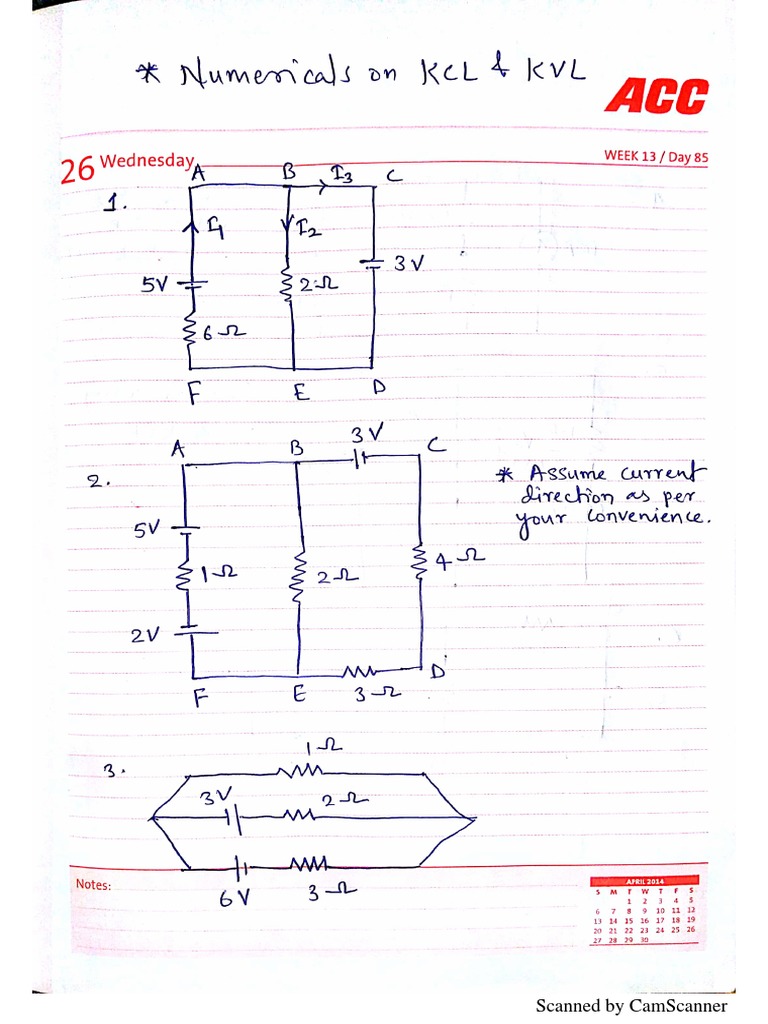 * Numericals on KCL & KVL
ACC
26 Wednesday
WEEK 13 / Day 85
A B I3 C
1.
I1 I2
5V 2Ω 3V
6Ω
F E D
A B 3V C
2.
* Assume current
direction as per
your convenience.
5V
1Ω 2Ω 4Ω
2V
F E 3Ω D
3.
1Ω
3V 2Ω
6V 3Ω
Notes:
APRIL 2014
S M T W T F S
1 2 3 4 5
6 7 8 9 10 11 12
13 14 15 16 17 18 19
20 21 22 23 24 25 26
27 28 29 30
Scanned by CamScanner